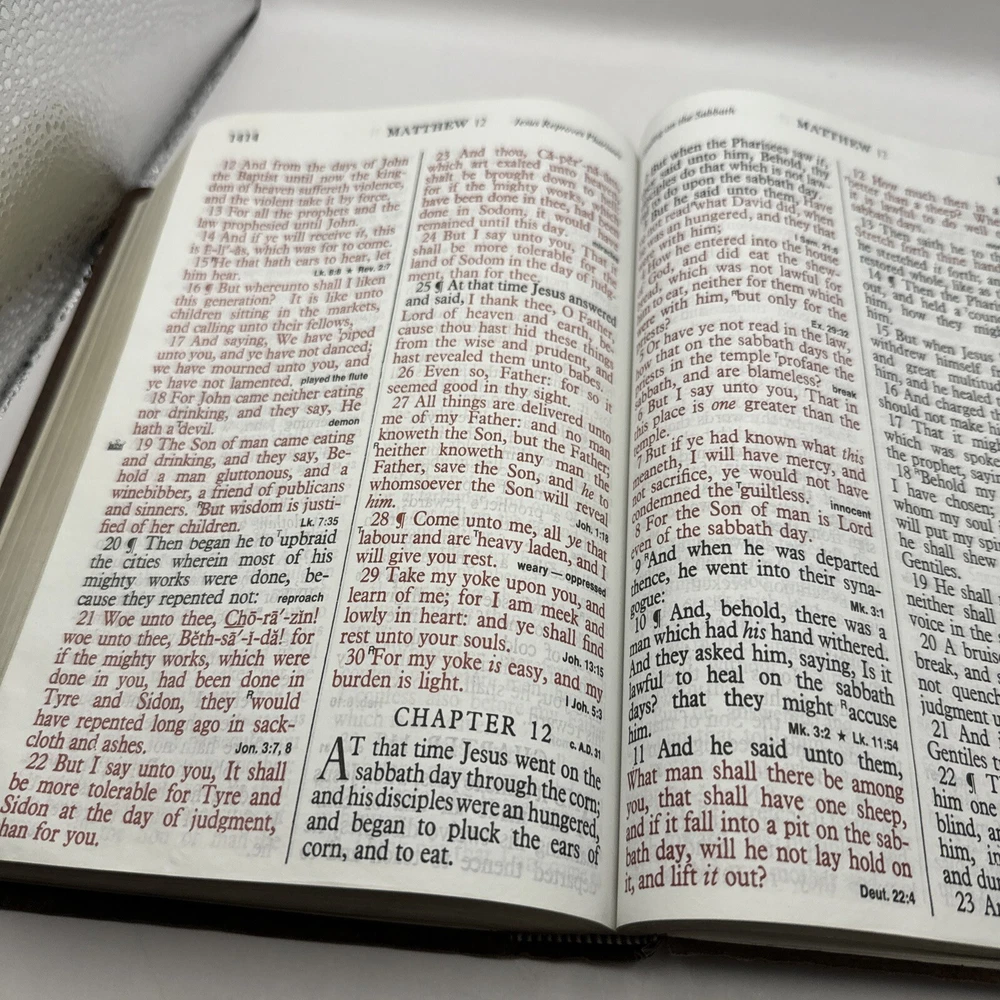 MATTHEW 12
Jesus Reproves Pharisees
12 And from the days of John
the Baptist until now the king-
dom of heaven suffereth violence,
and the violent take it by force.
13 For all the prophets and the
law prophesied until John.
14 And if ye will receive it, this
is Ē-lī´-ăs, which was for to come.
15 He that hath ears to hear, let
him hear. Lk. 8:8 ★ Rev. 2:7
16 ¶ But whereunto shall I liken
this generation? It is like unto
children sitting in the markets,
and calling unto their fellows,
17 And saying, We have piped
unto you, and ye have not danced;
we have mourned unto you, and
ye have not lamented. played the flute
18 For John came neither eating
nor drinking, and they say, He
hath a devil. demon
19 The Son of man came eating
and drinking, and they say, Be-
hold a man gluttonous, and a
winebibber, a friend of publicans
and sinners. ᴿBut wisdom is justi-
fied of her children. Lk. 7:35
20 ¶ Then began he to ᵀupbraid
the cities wherein most of his
mighty works were done, be-
cause they repented not: reproach
21 Woe unto thee, Chō-rā´-zĭn!
woe unto thee, Bĕth-sā´-ĭ-dă! for
if the mighty works, which were
done in you, had been done in
Tyre and Sidon, they ᴿwould
have repented long ago in sack-
cloth and ashes. Jon. 3:7, 8
22 But I say unto you, It shall
be more tolerable for Tyre and
Sidon at the day of judgment,
than for you.
23 And thou, Că-pẽr´-nă-ŭm,
which art exalted unto heaven,
shalt be brought down to hell:
for if the mighty works, which
have been done in thee, had been
done in Sodom, it would have
remained until this day.
24 But I say unto you, That it
shall be more tolerable for the
land of Sodom in the day of judg-
ment, than for thee.
25 ¶ At that time Jesus answered
and said, I thank thee, O Father,
Lord of heaven and earth, be-
cause thou hast hid these things
from the wise and prudent, and
hast revealed them unto babes.
26 Even so, Father: for so it
seemed good in thy sight.
27 All things are delivered unto
me of my Father: and no man
knoweth the Son, but the Father;
ᴿneither knoweth any man the
Father, save the Son, and he to
whomsoever the Son will reveal
him. Joh. 1:18
28 ¶ Come unto me, all ye that
ᵀlabour and are ᵀheavy laden, and I
will give you rest. weary — oppressed
29 Take my yoke upon you, and
learn of me; for I am meek and
lowly in heart: and ye shall find
rest unto your souls. Joh. 13:15
30 ᴿFor my yoke is easy, and my
burden is light. I Joh. 5:3
CHAPTER 12 c. A.D. 31
AT that time Jesus went on the
sabbath day through the corn;
and his disciples were an hungered,
and began to pluck the ears of
corn, and to eat.
on the Sabbath
MATTHEW 12
But when the Pharisees saw it,
said unto him, Behold, thy
ciples do that which is not law-
do upon the sabbath day.
But he said unto them, Have
read what David did, when
was an hungered, and they that
with him; I Sam. 21:6
How he entered into the house
God, and did eat the shew-
which was not lawful for
to eat, neither for them which
with him, ᴿbut only for the
priests? Ex. 29:32
5 Or have ye not read in the law,
how that on the sabbath days the
priests in the temple ᵀprofane the
sabbath, and are blameless? break
6 But I say unto you, That in
this place is one greater than the
temple.
7 But if ye had known what this
meaneth, I will have mercy, and
not sacrifice, ye would not have
condemned the ᵀguiltless. innocent
8 For the Son of man is Lord
even of the sabbath day.
9 ᴿAnd when he was departed
thence, he went into their syna-
gogue: Mk. 3:1
10 ¶ And, behold, there was a
man which had his hand withered.
And they asked him, saying, Is it
lawful to heal on the sabbath
days? that they might ᴿaccuse
him. Mk. 3:2 ★ Lk. 11:54
11 And he said unto them,
What man shall there be among
you, that shall have one sheep,
and if it fall into a pit on the sab-
bath day, will he not lay hold on
it, and lift it out? Deut. 22:4
12 How much then is
better than a sheep?
14 ¶ Then the
out, and held a coun
him, how they might
15 But when Jesus
withdrew himself
and great multitud
him, and he healed
16 And charged
should not make hi
17 That it mig
which was spoke
the prophet, sayin
18 ᴿBehold my
I have chosen;
whom my soul
will put my spi
he shall shew
Gentiles.
19 He shall
neither shall
voice in the
20 A bruise
break, and s
not quench
judgment u
21 And i
Gentiles t
22 ¶ T
him one
blind, a
him, in
and du
23 A